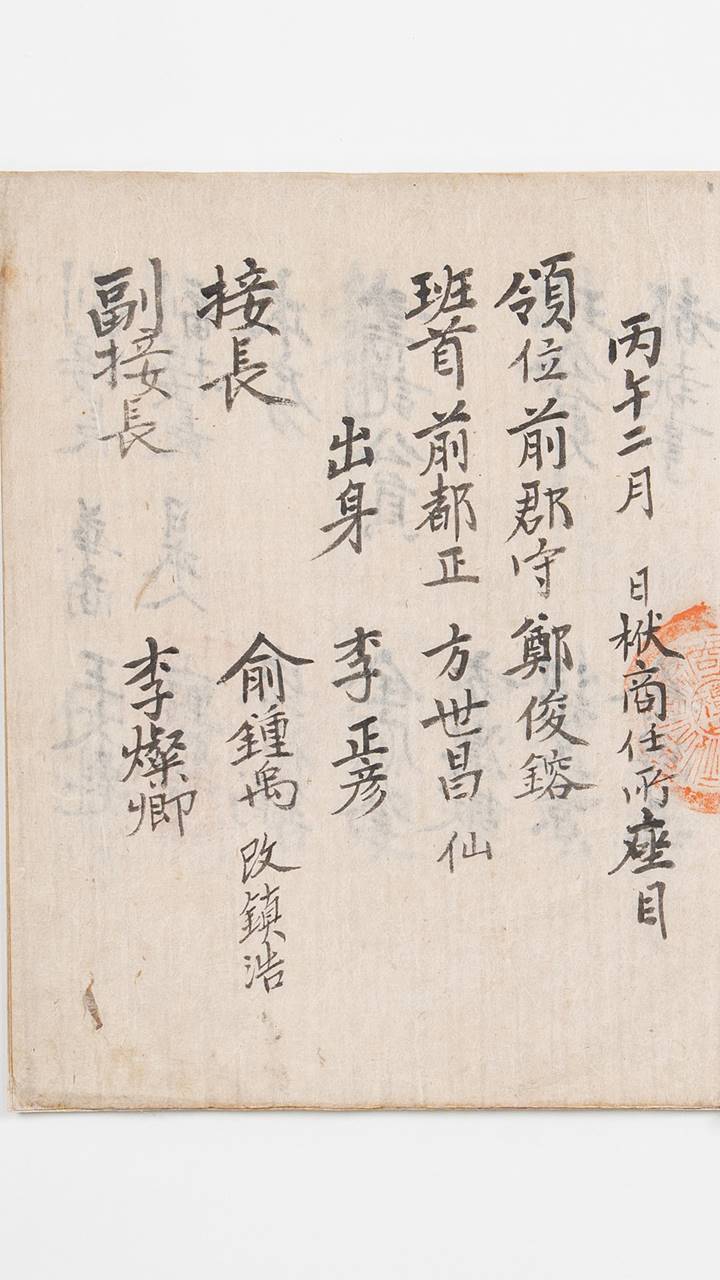 丙午二月 日 楸商任所座目
領位 前郡守 鄭俊鎔
班首 前都正 方世昌 仙
出身 李正彦
接長 俞鍾禹 改鎮浩
副接長 李燦卿